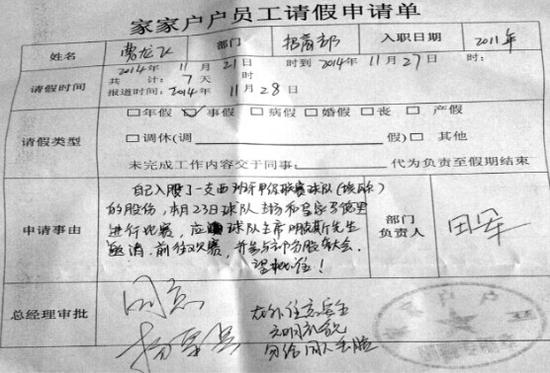 家家户户员工请假申请单
姓名 曹龙飞 部门 招商部 入职日期 2011年
请假时间 2014年11月21日 时到2014年11月27日 时:
共计: 7天 时
报道时间: 2014年11月28日
请假类型 □年假 ☑事假 □病假 □婚假 □丧 □产假
□调休(调 假) □其他
未完成工作内容交于同事: 代为负责至假期结束
申请事由 自己入股了一支西班牙甲级联赛球队(埃瓦)
的股份,本月23日球队主场和皇家马德里
进行比赛,应球队主席明戈斯先生
邀请,前往观赛,并参与部分股东会.
望批准!
部门
负责人 田军
总经理审批 同意
在外注意安全
文明礼貌
勿给国人丢脸
家家户户